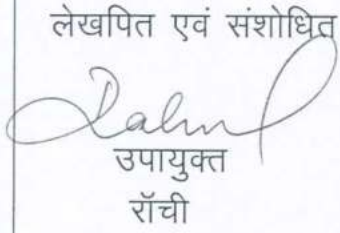 लेखपित एवं संशोधित
उपायुक्त
राँची